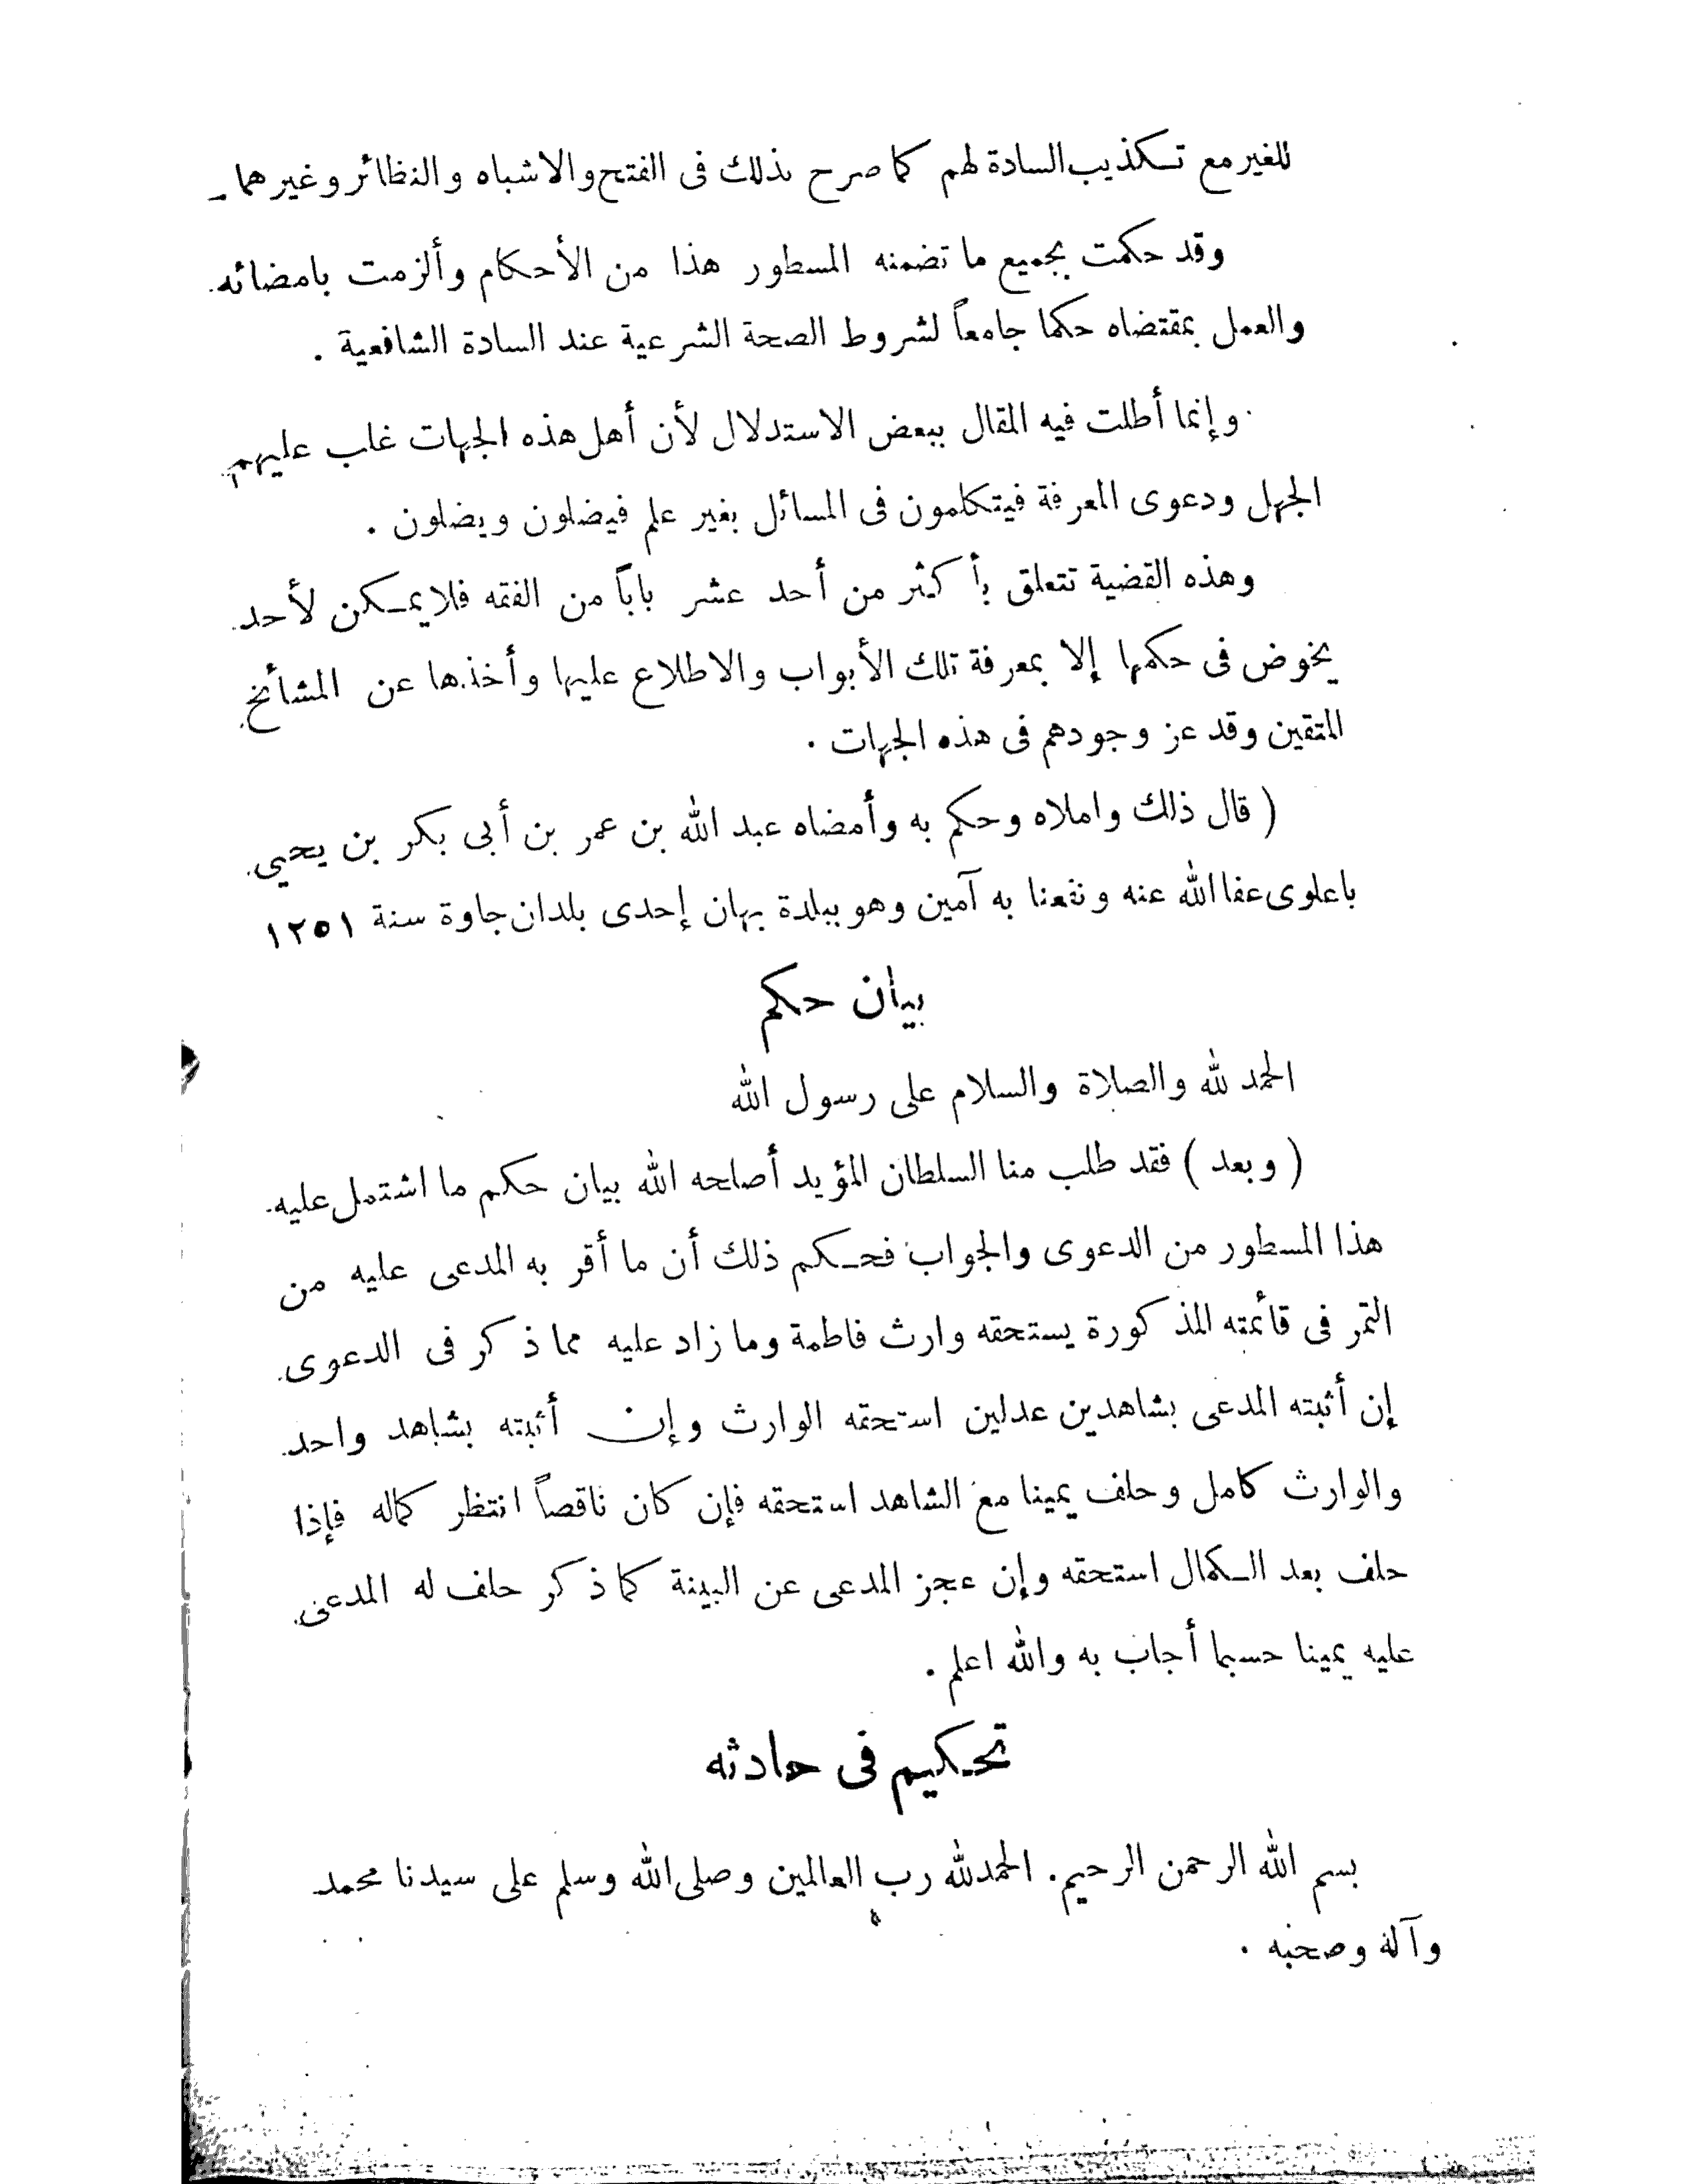 للغير مع تكذيب السادة لهم كما صرح بذلك فى الفتح والاشباه والنظائر وغيرهما
وقد حكمت بجميع ما تضمنه المسطور هذا من الأحكام وألزمت بامضائه
والعمل بمقتضاه حكما جامعاً لشروط الصحة الشرعية عند السادة الشافعية .
وإنما أطلت فيه المقال ببعض الاستدلال لأن أهل هذه الجهات غلب عليهم
الجهل ودعوى المعرفة فيتكلمون فى المسائل بغير علم فيضلون ويضلون .
وهذه القضية تتعلق بأكثر من أحد عشر باباً من الفقه فلا يمكن لأحد
يخوض فى حكمها إلا بمعرفة تلك الأبواب والاطلاع عليها وأخذها عن المشائخ
المتقين وقد عز وجودهم فى هذه الجهات .
( قال ذلك واملاه وحكم به وأمضاه عبد الله بن عمر بن أبى بكر بن يحيى
باعلوى عفا الله عنه ونفعنا به آمين وهو ببلدة بهان إحدى بلدان جاوة سنة ١٢٥١
بيان حكم
الحمد لله والصلاة والسلام على رسول الله
( وبعد ) فقد طلب منا السلطان المؤيد أصلحه الله بيان حكم ما اشتمل عليه
هذا المسطور من الدعوى والجواب فحكم ذلك أن ما أقر به المدعى عليه من
التمر فى قائمته المذكورة يستحقه وارث فاطمة وما زاد عليه مما ذكر فى الدعوى
إن أثبته المدعى بشاهدين عدلين استحقه الوارث وإن أثبته بشاهد واحد
والوارث كامل وحلف يمينا مع الشاهد استحقه فإن كان ناقصاً انتظر كماله فإذا
حلف بعد الكمال استحقه وإن عجز المدعى عن البينة كما ذكر حلف له المدعى
عليه يمينا حسبما أجاب به والله اعلم .
تحكيم فى حادثه
بسم الله الرحمن الرحيم . الحمد لله رب العالمين وصلى الله وسلم على سيدنا محمد
وآله وصحبه .